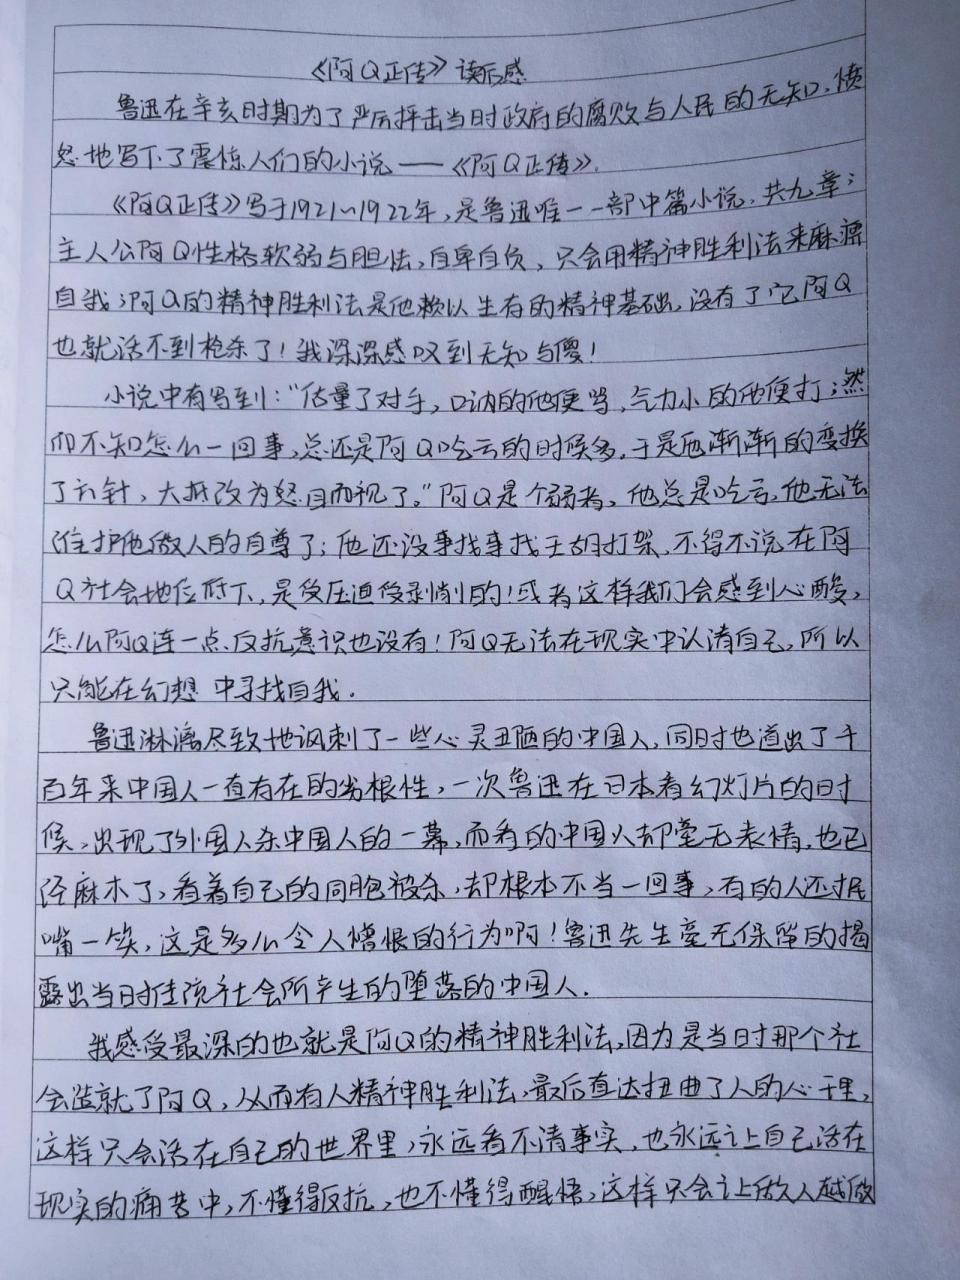 《阿Q正传》读后感
鲁迅在辛亥时期为了严厉抨击当时政府的腐败与人民的无知,愤
怒地写下了震惊人们的小说——《阿Q正传》.
《阿Q正传》写于1921~1922年,是鲁迅唯一一部中篇小说,共九章;
主人公阿Q性格软弱与胆怯,自卑自负,只会用精神胜利法来麻痹
自我;阿Q的精神胜利法是他赖以生存的精神基础,没有了它阿Q
也就活不到枪杀了!我深深感叹到无知与傻!
小说中有写到:“估量了对手,口讷的他便骂,气力小的他便打;然
而不知怎么一回事,总还是阿Q吃亏的时候多,于是他渐渐的变换
了方针,大抵改为怒目而视了。”阿Q是个弱者,他总是吃亏,他无法
维护他做人的自尊了;他还没事找事找王胡打架,不得不说在阿
Q社会地位低下,是受压迫受剥削的!或者这样我们会感到心酸,
怎么阿Q连一点反抗意识也没有!阿Q无法在现实中认清自己,所以
只能在幻想中寻找自我.
鲁迅淋漓尽致地讽刺了一些心灵丑陋的中国人,同时也道出了千
百年来中国人一直存在的劣根性,一次鲁迅在日本看幻灯片的时
候,出现了外国人杀中国人的一幕,而看的中国人却毫无表情,也已
经麻木了,看着自己的同胞被杀,却根本不当一回事,有的人还抿
嘴一笑,这是多么令人憎恨的行为啊!鲁迅先生毫无保留的揭
露出当时社会所产生的堕落的中国人.
我感受最深的也就是阿Q的精神胜利法,因为是当时那个社
会造就了阿Q,从而有人精神胜利法,最后直达扭曲了人的心理,
这样只会活在自己的世界里,永远看不清事实,也永远让自己活在
现实的痛苦中,不懂得反抗,也不懂得醒悟,这样只会让做人越做